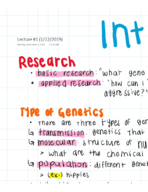 Lecture #1 (1/22/2019)
Int
Research
• basic research "what geno
• applied research "how can i
aggressive?"
Type of Genetics
• there are three types of gen
↳ transmission genetics that
↳ molecular structure of nu
• what are the chemical
↳ population: different gene
(ex.) hippies